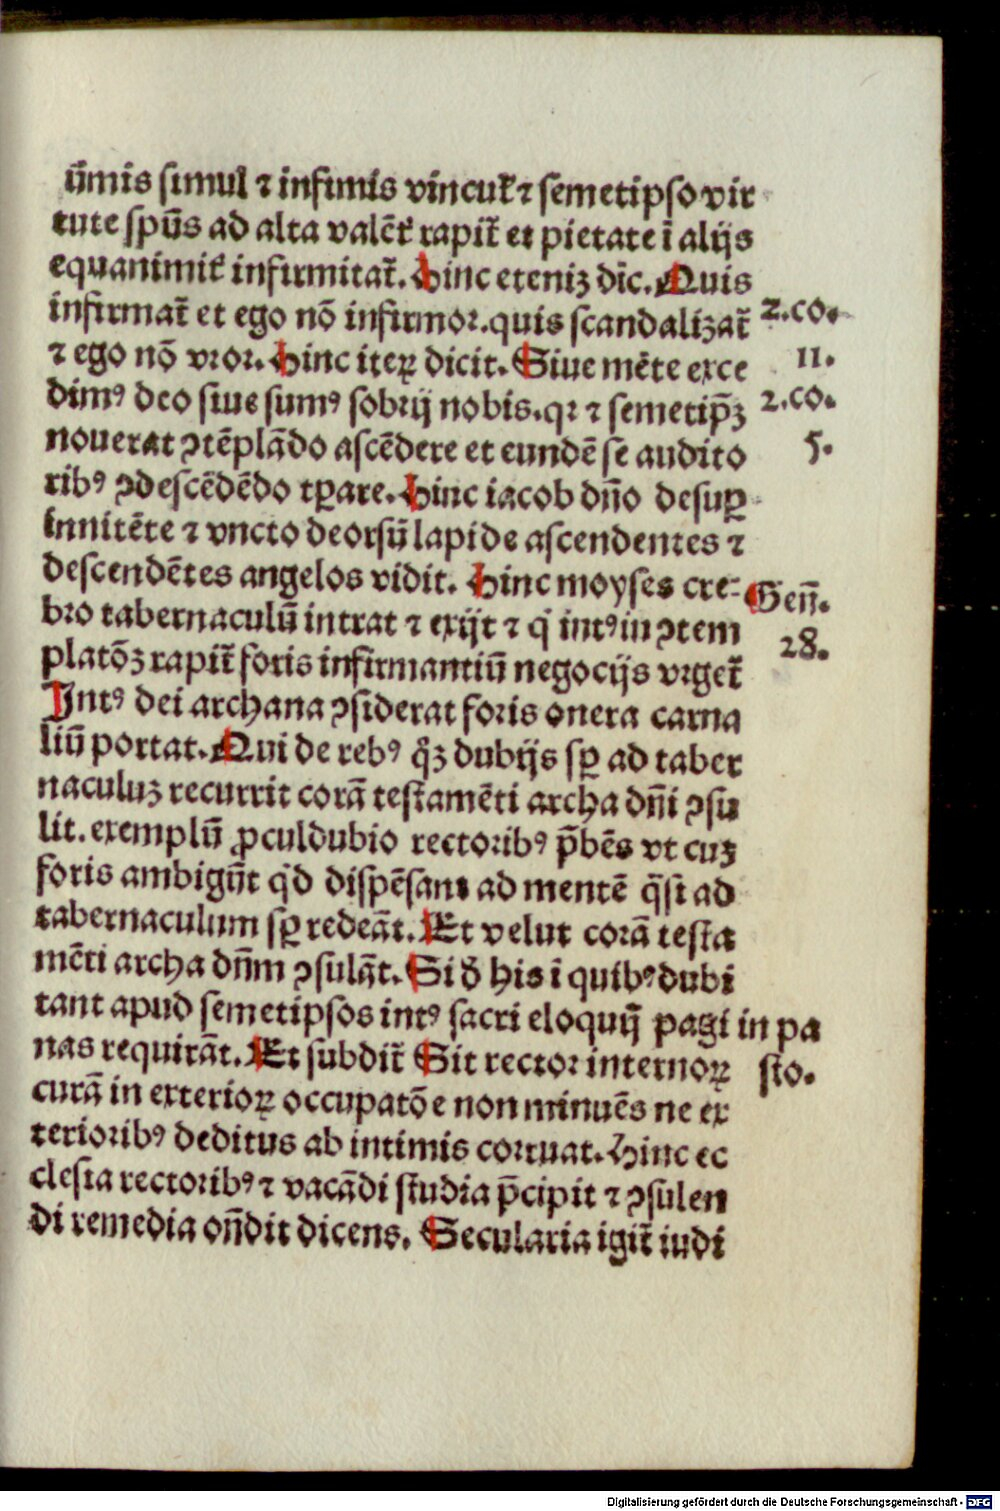 ūmis simul ⁊ infimis vinculꝛ ⁊ semetipso vir
tute spūs ad alta valēt̄ rapit̄ et pietate ī alijs
equanimit̄ infirmitat̄. Hinc eteniꝫ dīc. Quis
infirmat̄ et ego nō infirmor. quis scandalizat̄
2.co.
⁊ ego nō vror. Hinc iteꝝ dicit. Siue mēte exce
11.
dimꝰ deo siue sumꝰ sobrij nobis. qꝛ ⁊ semetip̄ꝫ
2.co.
nouerat ↄtēplādo ascēdere et eundē se audito
5.
ribꝰ ↄdescēdēdo tꝑare. Hinc iacob dn̄o desuꝑ
innitēte ⁊ vncto deorsū lapide ascendentes ⁊
descendētes angelos vidit. Hinc moyses cre⸗
Gen̄.
bro tabernaculū intrat ⁊ exijt ⁊ q̇ intꝰ in ↄtem
28.
platōꝫ rapit̄ foris infirmantiū negocijs vrget̄
Intꝰ dei archana ↄsiderat foris onera carna
liū portat. Qui de rebꝰ q̊ꝫ dubijs sꝑ ad taber
naculuꝫ recurrit corā testamēti archa dn̄i ↄsu
lit. exemplū ꝓculdubio rectoribꝰ p̄bēs vt cuꝫ
foris ambigūt qd̓ dispēsant ad mentē q̄si ad
tabernaculum sꝑ redeāt. Et velut corā testa
mēti archa dn̄m ↄsulāt. Si đ his ī quibꝰ dubi
tant apud semetipsos intꝰ sacri eloquij̄ pagi
in pa
nas requirāt. Et subdit̄ Sit rector internoꝝ
sto.
curā in exterioꝝ occupatōe non minuēs ne ex
terioribꝰ deditus ab intimis corruat. Hinc ec
clesia rectoribꝰ ⁊ vacādi studia p̄cipit ⁊ ↄsulen
di remedia on̄dit dicens. Secularia igit̄ iudi
Digitalisierung gefördert durch die Deutsche Forschungsgemeinschaft - DFG